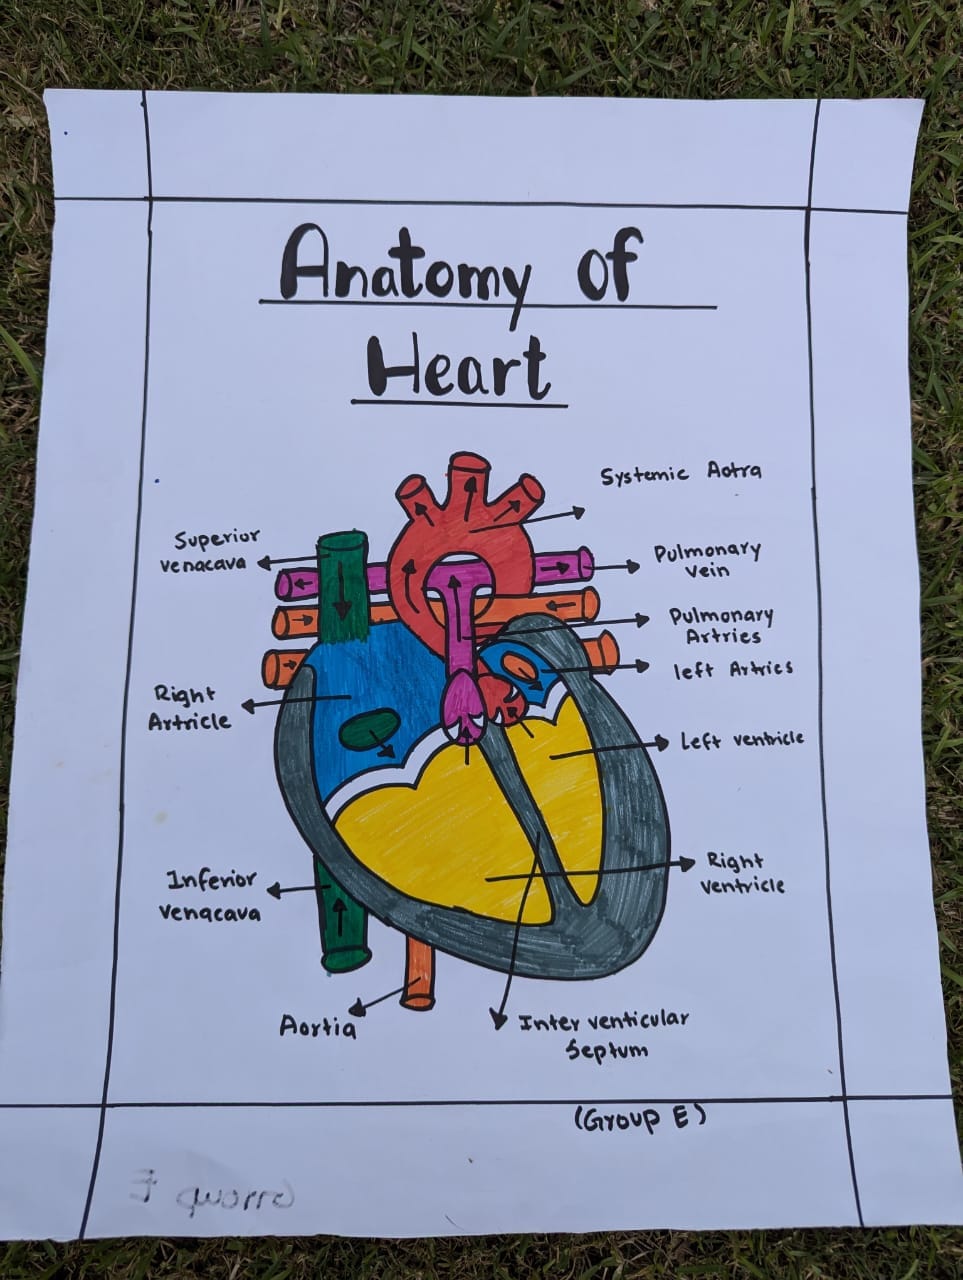 Anatomy of
Heart
Systemic Aotra
Superior
venacava
Pulmonary
vein
Pulmonary
Artries
left Artries
Right
Artricle
Left ventricle
Right
ventricle
Inferior
venacava
Aortia
Inter venticular
Septum
(Group E)
Group E